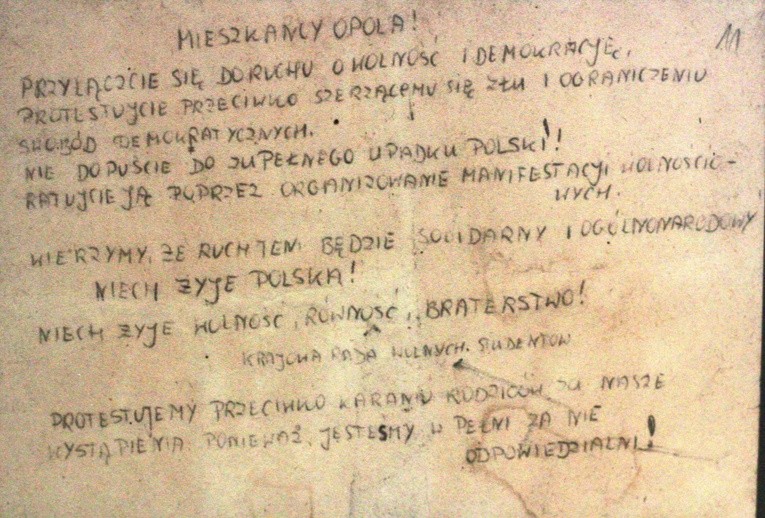 11
MIESZKAŃCY OPOLA!
PRZYŁĄCZCIE SIĘ DO RUCHU O WOLNOŚĆ I DEMOKRACJĘ,
PROTESTUJCIE PRZECIWKO SZERZĄCEMU SIĘ ZŁU I OGRANICZENIU
SWOBÓD DEMOKRATYCZNYCH.
NIE DOPUŚCIE DO ZUPEŁNEGO UPADKU POLSKI!!
RATUJCIE JĄ POPRZEZ ORGANIZOWANIE MANIFESTACYJ WOLNOŚCIO-
WYCH.
WIERZYMY, ŻE RUCH TEN BĘDZIE SOLIDARNY I OGÓLNONARODOWY
NIECH ŻYJE POLSKA!
NIECH ŻYJE WOLNOŚĆ, RÓWNOŚĆ, BRATERSTWO!
KRAJOWA RADA WOLNYCH STUDENTÓW
PROTESTUJEMY PRZECIWKO KARANIU RODZICÓW ZA NASZE
WYSTĄPIENIA PONIEWAŻ JESTEŚMY W PEŁNI ZA NIE
ODPOWIEDZIALNI!